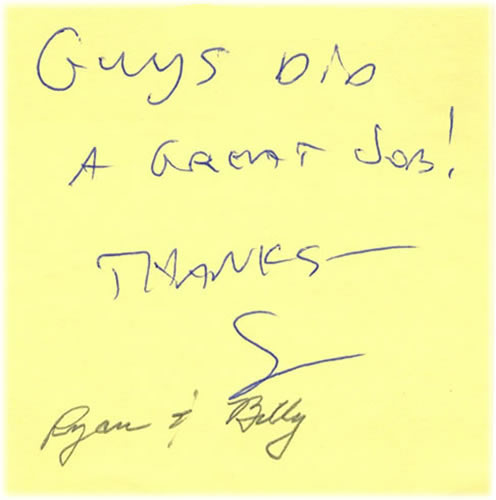 Guys DID
A GREAT JOB!
THANKS—
S
Ryan & Billy